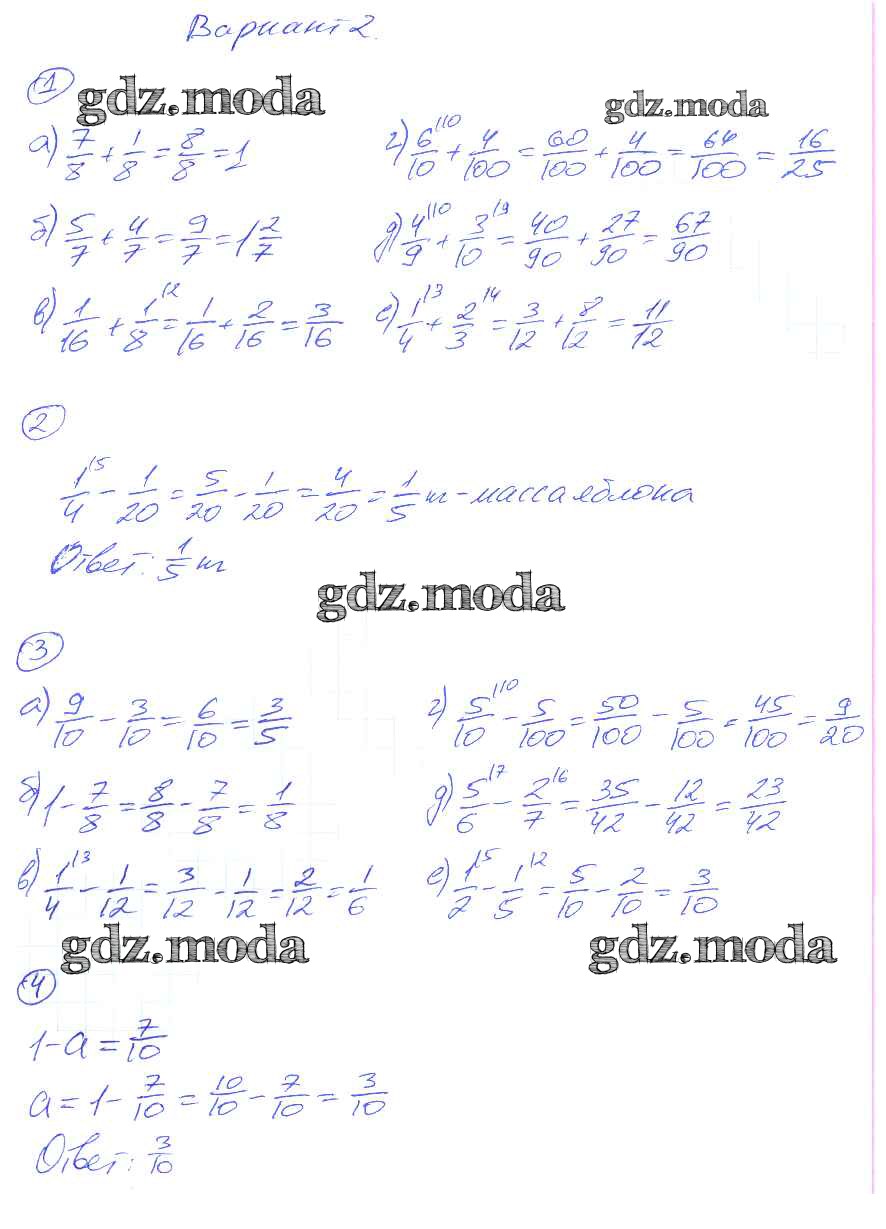 Вариант 2.
1
gdz.moda gdz.moda
а) 7/8 + 1/8 = 8/8 = 1
г) 6/10 \10 + 4/100 = 60/100 + 4/100 = 64/100 = 16/25
б) 5/7 + 4/7 = 9/7 = 1 2/7
д) 4/9 \10 + 3/10 \9 = 40/90 + 27/90 = 67/90
в) 1/16 + 1/8 \2 = 1/16 + 2/16 = 3/16
е) 1/4 \3 + 2/3 \4 = 3/12 + 8/12 = 11/12
2
1/4 \5 - 1/20 = 5/20 - 1/20 = 4/20 = 1/5 кг - масса яблока
Ответ: 1/5 кг
gdz.moda
3
а) 9/10 - 3/10 = 6/10 = 3/5
г) 5/10 \10 - 5/100 = 50/100 - 5/100 = 45/100 = 9/20
б) 1 - 7/8 = 8/8 - 7/8 = 1/8
д) 5/6 \7 - 2/7 \6 = 35/42 - 12/42 = 23/42
в) 1/4 \3 - 1/12 = 3/12 - 1/12 = 2/12 = 1/6
е) 1/2 \5 - 1/5 \2 = 5/10 - 2/10 = 3/10
gdz.moda gdz.moda
4
1 - а = 7/10
а = 1 - 7/10 = 10/10 - 7/10 = 3/10
Ответ: 3/10